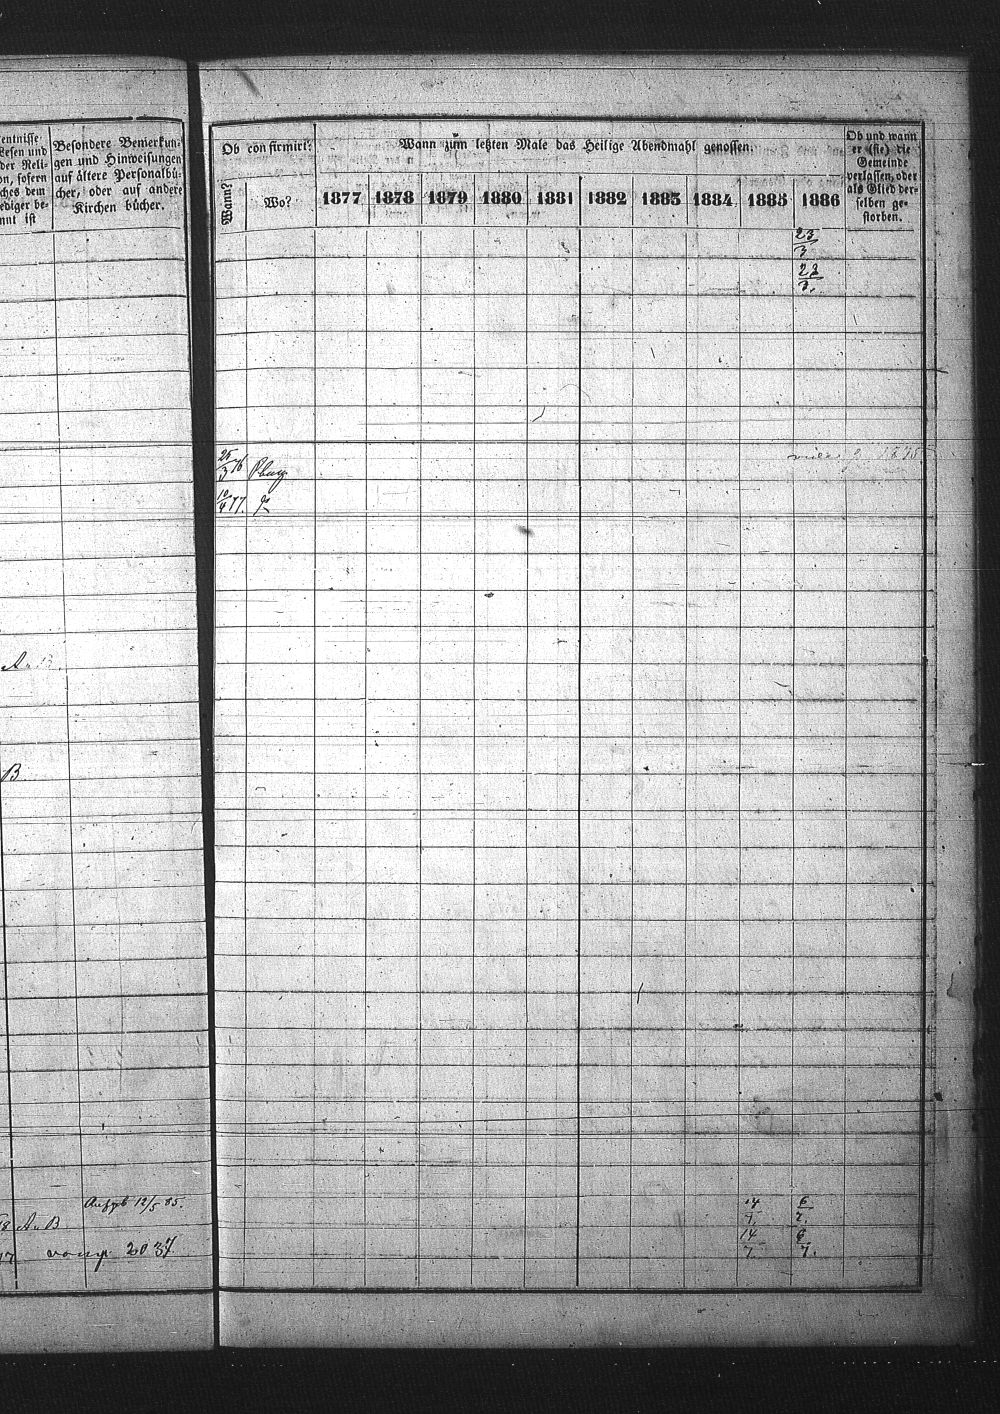 entnisse
Lesen und
der Reli-
on, sofern
ches dem
ediger be-
nnt ist
Besondere Bemerkun-
gen und Hinweisungen
auf ältere Personalbü-
cher, oder auf andere
Kirchen bücher.
Ob confirmirt?
Wann?
Wo?
Wann zum letzten Male das Heilige Abendmahl genossen.
1877 1878 1879 1880 1881 1882 1883 1884 1885 1886
Ob und wann
er (sie) die
Gemeinde
verlassen, oder
als Glied der-
selben ge-
storben.
23/3
23/3.
25/3 76
10/4 77.
A. B.
B
Aufgeb 12/5 85.
14/7. 6/7.
18 A. B
14/7. 6/7.
17 2037